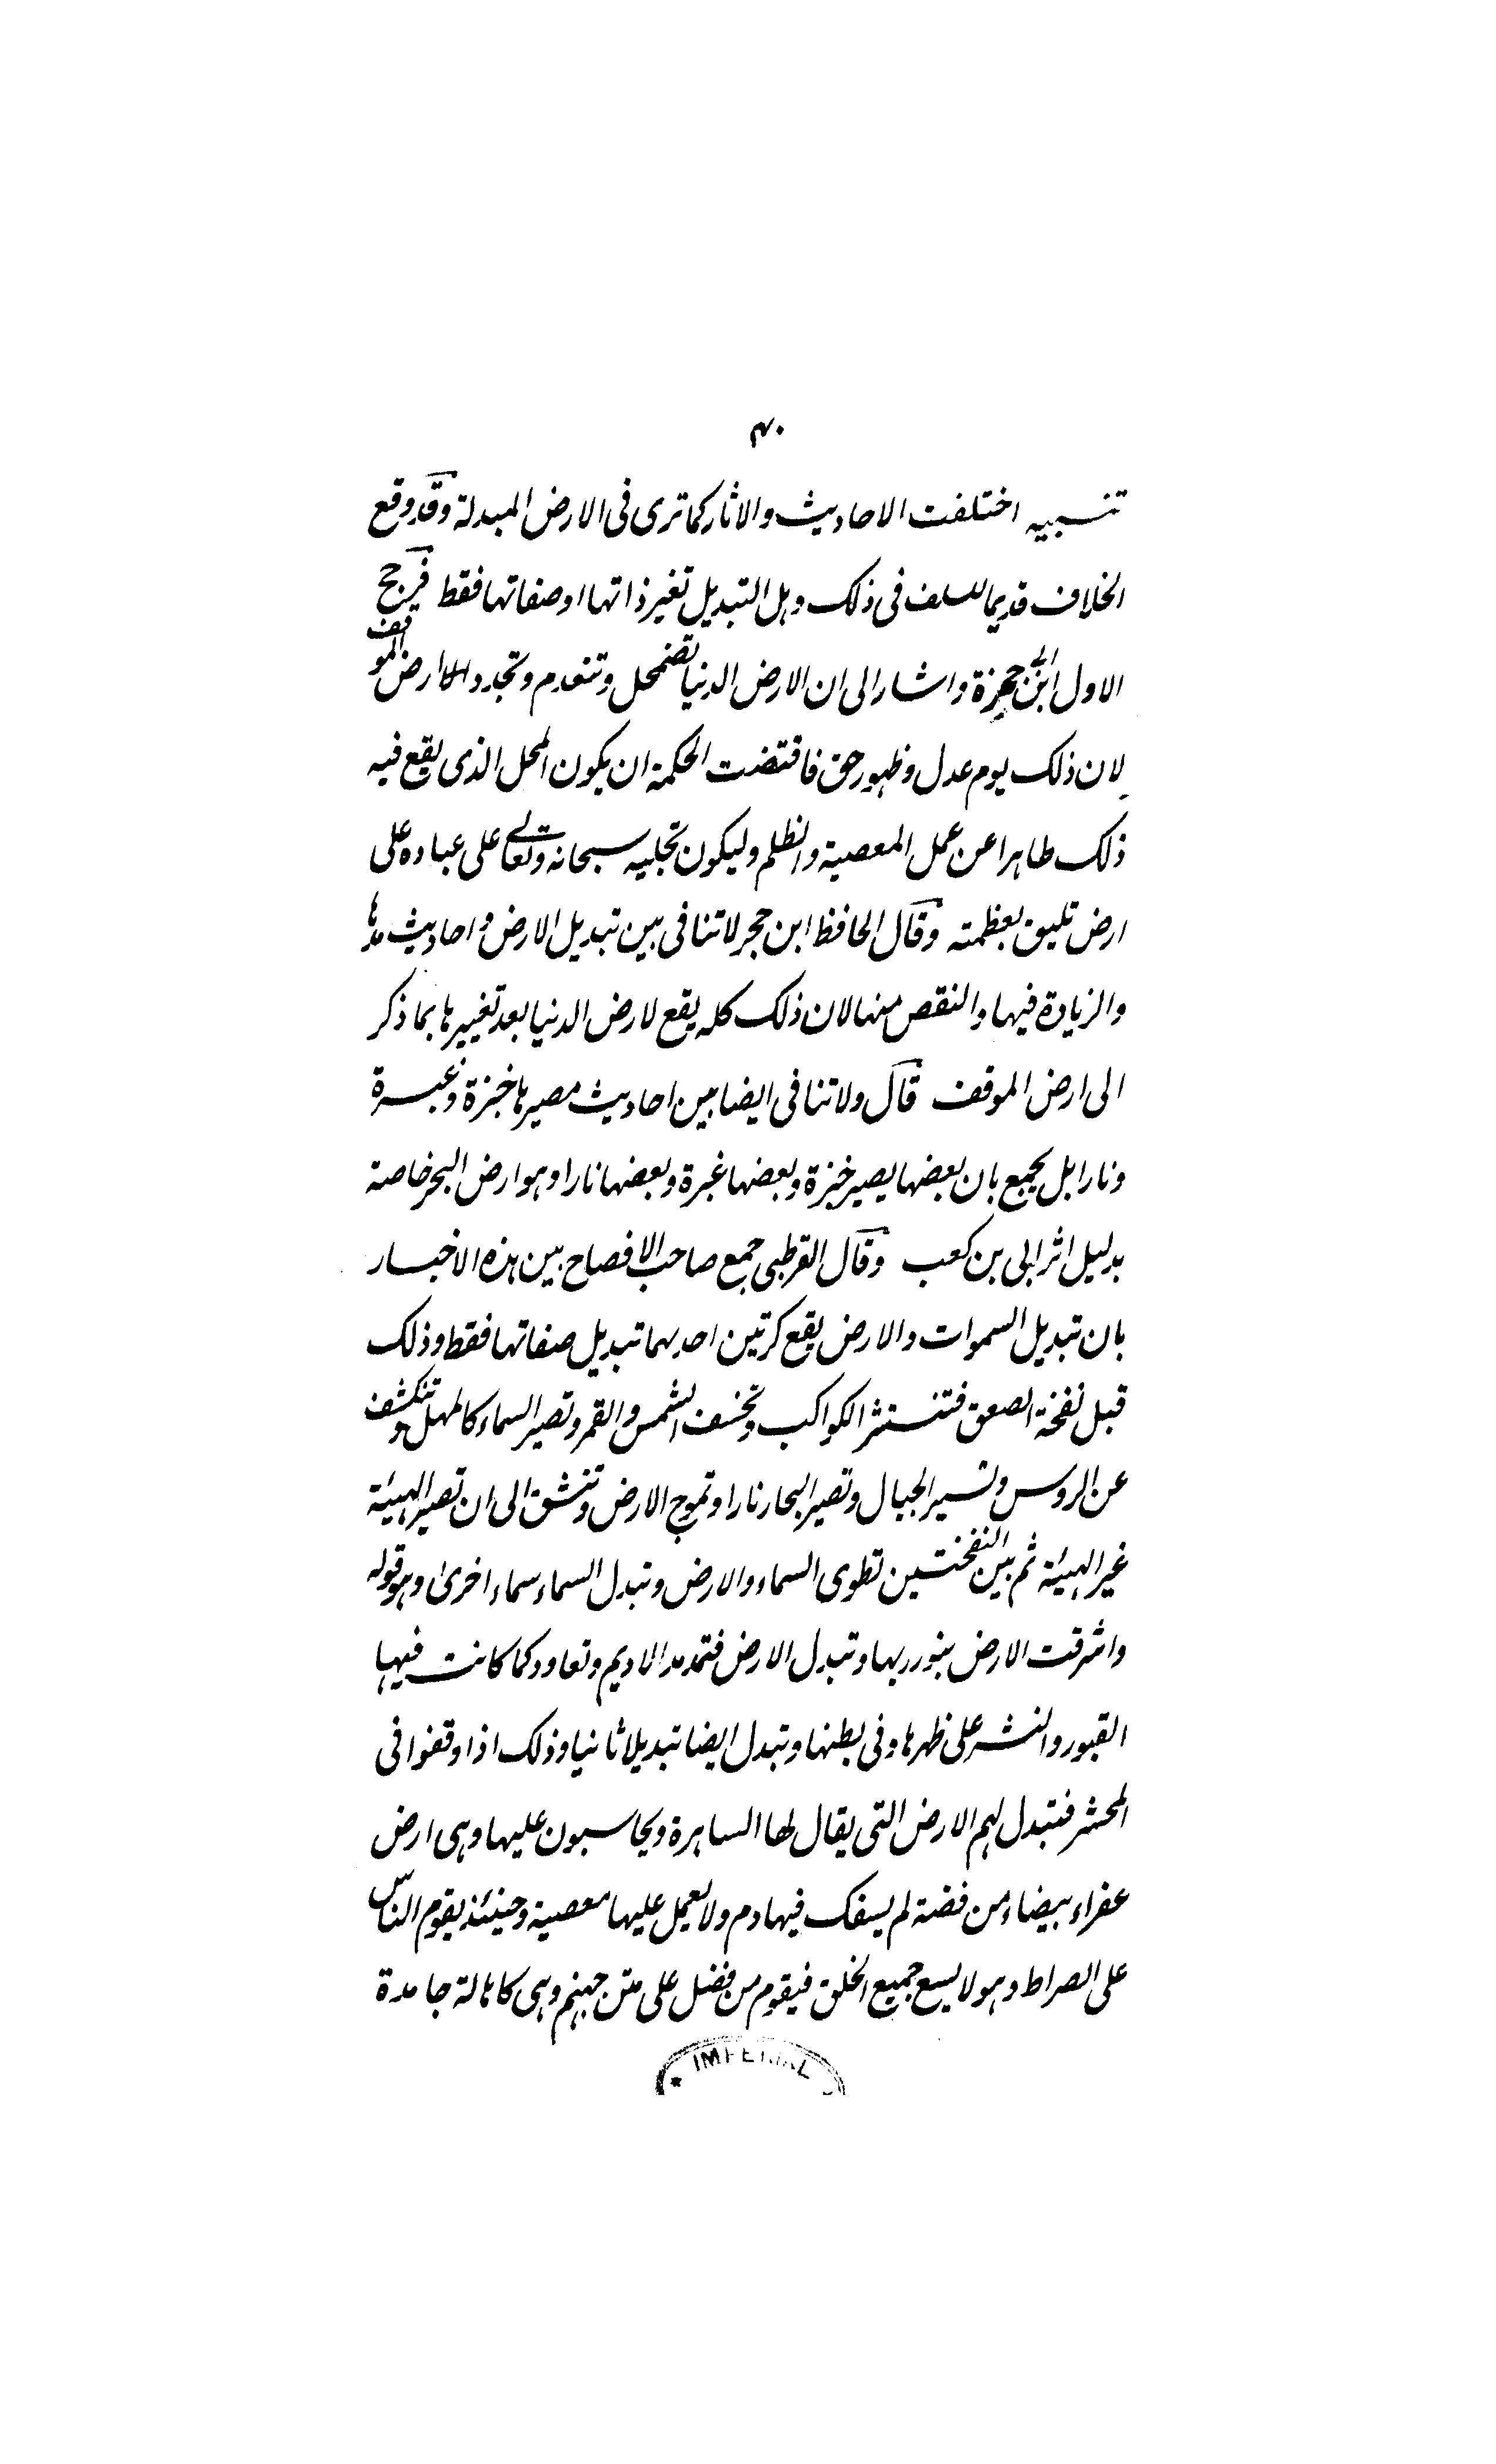 ۴۰
تنبيه اختلفت الاحاديث والاثار كما ترى فى الارض المبدلة وقد وقع
الخلاف قديما للسلف فى ذلك وهل التبديل تغير ذاتها او صفاتها فقط فرجح
الاول ابن ابى جمرة واشار الى ان الارض الدنيا تضمحل وتنعدم وتجدد الارض الموقف
لان ذلك يوم عدل وظهور حق فاقتضت الحكمة ان يكون المحل الذى يقع فيه
ذلك طاهرا عن عمل المعصية والظلم وليكون تجليه سبحانه وتعالى على عباده على
ارض تليق بعظمته وقال الحافظ ابن حجر لا تنافى بين تبديل الارض واحاديث مدها
والزيادة فيها والنقص منها لان ذلك كله يقع لارض الدنيا بعد تغييرها بما ذكر
الى ارض الموقف قال ولا تنافى ايضا بين احاديث مصيرها خبزة وغبرة
ونارا بل يجمع بان بعضها يصير خبزة وبعضها غبرة وبعضها نارا وهو ارض البحر خاصة
بدليل اثر ابى بن كعب وقال القرطبى جمع صاحب الافصاح بين هذه الاخبار
بان تبديل السموات والارض يقع كرتين احدهما تبديل صفاتها فقط وذلك
قبل نفخة الصعق فتنتشر الكواكب وتخسف الشمس والقمر وتصير السماء كالمهل وتنكشف
عن الروس وتسير الجبال وتصير البحار نارا وتموج الارض وتنشق الى ان تصير الهيئة
غير الهيئة ثم بين النفختين تطوى السماء والارض وتبدل السماء سماء اخرى وهو قوله
واشرقت الارض بنور ربها وتبدل الارض فتمد مد الاديم وتعاد كما كانت فيها
القبور والنشر على ظهرها وفى بطنها وتبدل ايضا تبديلا ثانيا وذلك اذا وقفوا فى
المحشر فتبدل لهم الارض التى يقال لها الساهرة ويحاسبون عليها وهى ارض
عفراء بيضاء من فضة لم يسفك فيها دم ولا يعمل عليها معصية وحينئذ يقوم الناس
على الصراط وهو لا يسع جميع الخلق فيقوم من فضل على متن جهنم وهى كاهالة جامدة
IMPERIAL